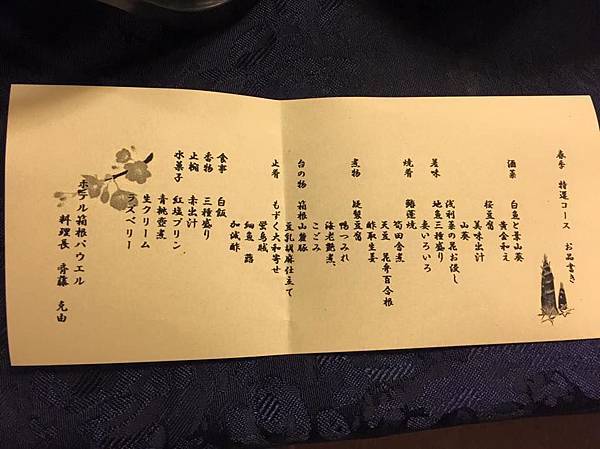 春季 特選コース お品書き
酒菜 白魚と葉山葵
黄金和え
桜豆腐
美味出汁
山葵
浅利菜の花お浸し
造味 地魚三種盛り
妻いろいろ
焼肴 鰆蓮焼
筍田舎煮
天豆 昆布百合根
酢取生姜
煮物 擬製豆腐
鴨つみれ
海老艶煮
こごみ
台の物 箱根山麓豚
豆乳胡麻仕立て
止肴 もずく大和寄せ
蛍烏賊
細魚 蕗
加減酢
食事 白飯
香物 三種盛り
止椀 赤出汁
水菓子 紅塩プリン
青桃壺煮
生クリーム
ラズベリー
ホテル箱根パウエル
料理長 齊藤 克由